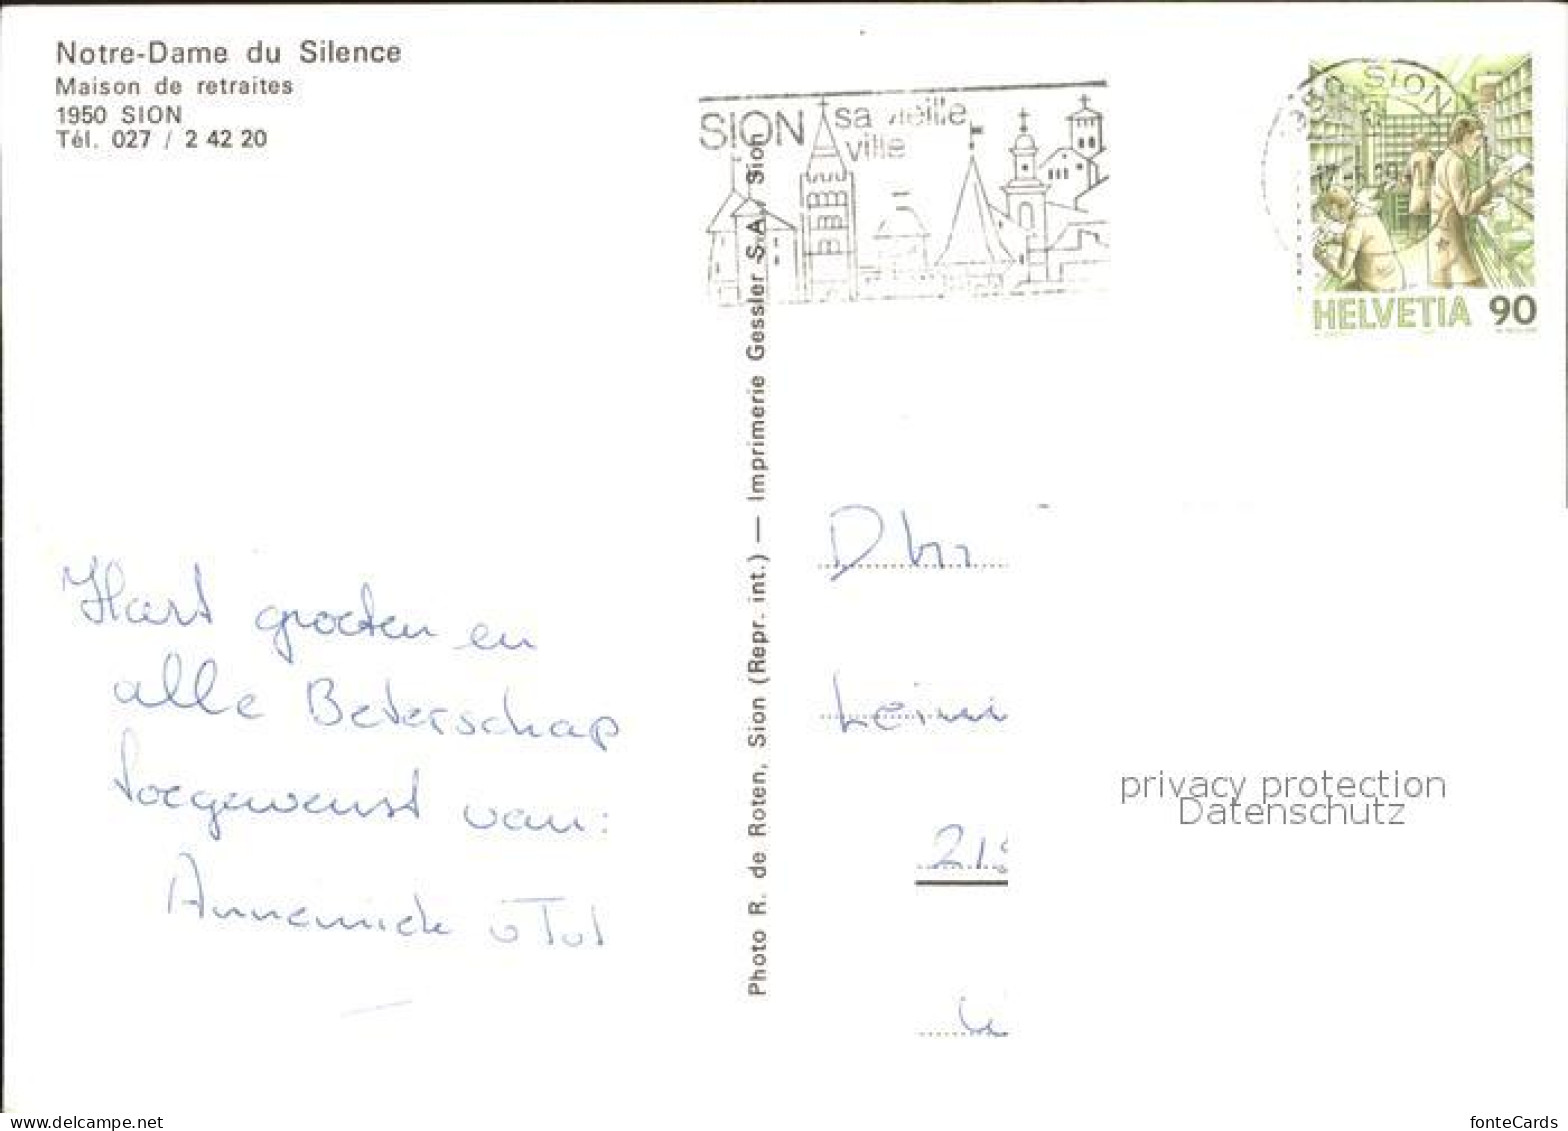 Notre-Dame du Silence
Maison de retraites
1950 SION
Tél. 027 / 2 42 20
SION sa vieille
ville
1950 SION
HELVETIA 90
Photo R. de Roten, Sion (Repr. int.) — Imprimerie Gessler S.A., Sion
Hart groeten en
alle Beterschap
toegewenst van:
Annemiek v Tol
Dhr
Leim
21
privacy protection
Datenschutz
www.ansichtskartenversand.com
fonteCards